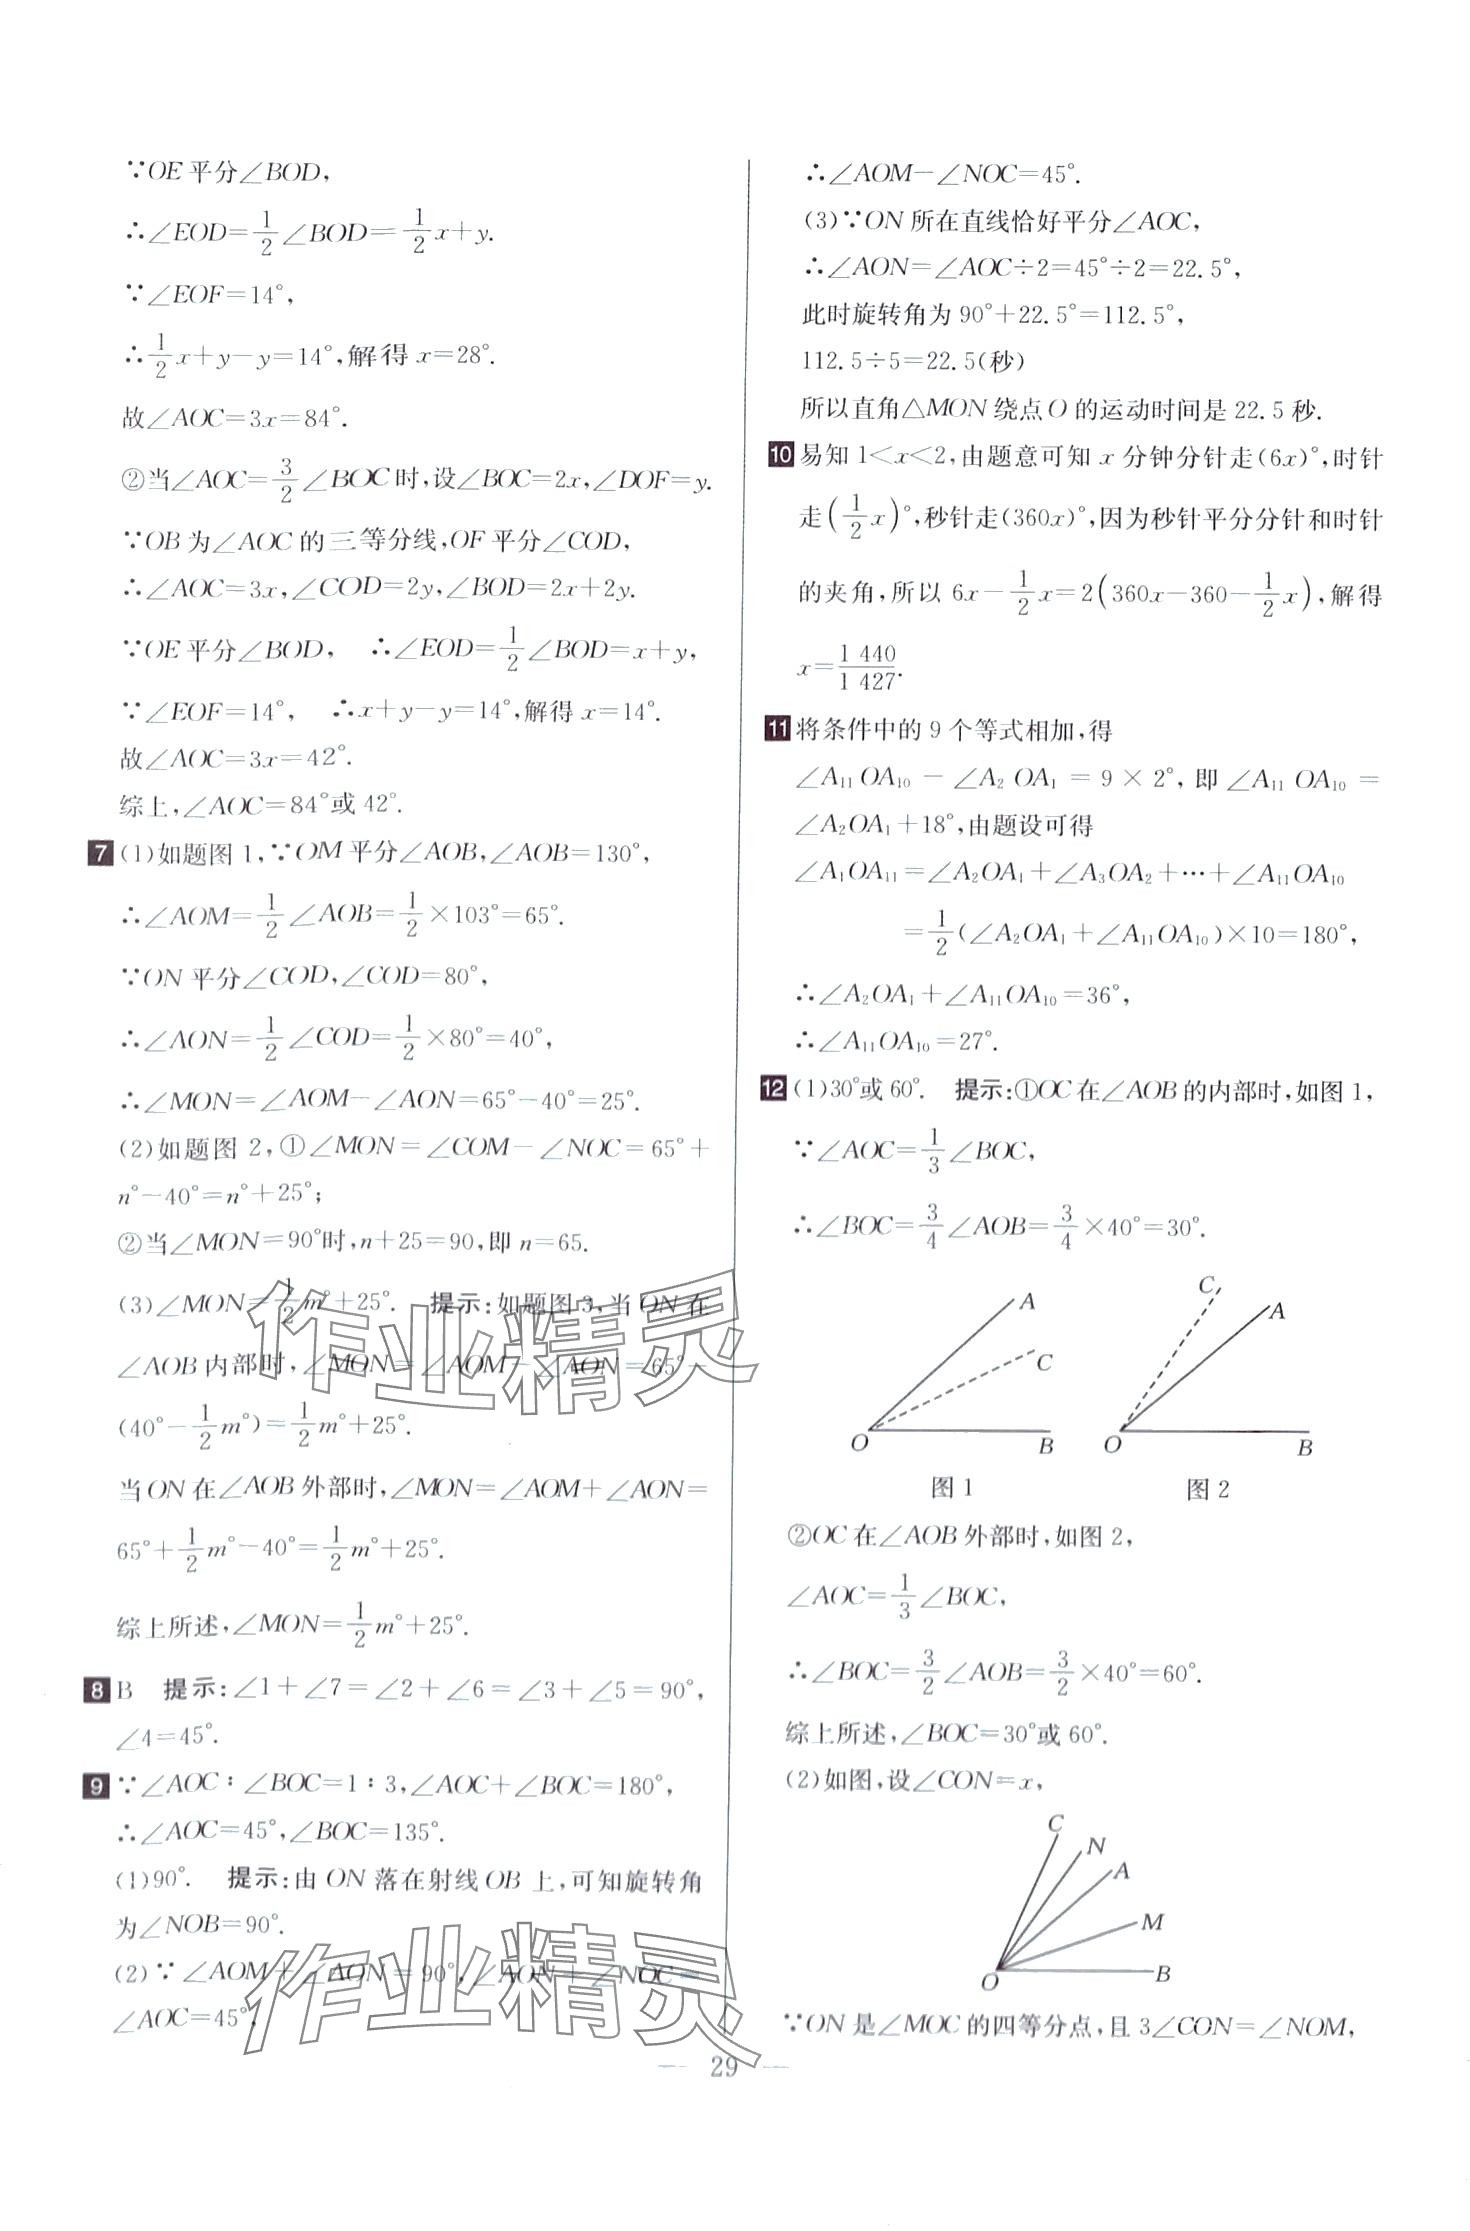 ∵OE平分∠BOD,
∴∠EOD=1/2∠BOD=1/2x+y.
∵∠EOF=14°,
∴1/2x+y-y=14°,解得x=28°.
故∠AOC=3x=84°.
②当∠AOC=3/2∠BOC时,设∠BOC=2x,∠DOF=y.
∵OB为∠AOC的三等分线,OF平分∠COD,
∴∠AOC=3x,∠COD=2y,∠BOD=2x+2y.
∵OE平分∠BOD, ∴∠EOD=1/2∠BOD=x+y,
∵∠EOF=14°, ∴x+y-y=14°,解得x=14°.
故∠AOC=3x=42°.
综上,∠AOC=84°或42°.
7 (1)如题图1,∵OM平分∠AOB,∠AOB=130°,
∴∠AOM=1/2∠AOB=1/2×103°=65°.
∵ON平分∠COD,∠COD=80°,
∴∠AON=1/2∠COD=1/2×80°=40°,
∴∠MON=∠AOM-∠AON=65°-40°=25°.
(2)如题图2,①∠MON=∠COM-∠NOC=65°+
n°-40°=n°+25°;
②当∠MON=90°时,n+25=90,即n=65.
(3)∠MON=1/2m°+25°. 提示:如题图3,当ON在
∠AOB内部时,∠MON=∠AOM-∠AON=65°-
(40°-1/2m°)=1/2m°+25°.
当ON在∠AOB外部时,∠MON=∠AOM+∠AON=
65°+1/2m°-40°=1/2m°+25°.
综上所述,∠MON=1/2m°+25°.
8 B 提示:∠1+∠7=∠2+∠6=∠3+∠5=90°,
∠4=45°.
9 ∵∠AOC∶∠BOC=1∶3,∠AOC+∠BOC=180°,
∴∠AOC=45°,∠BOC=135°.
(1)90°. 提示:由ON落在射线OB上,可知旋转角
为∠NOB=90°.
(2)∵∠AOM+∠AON=90°,∠AON+∠NOC=
∠AOC=45°,
∴∠AOM-∠NOC=45°.
(3)∵ON所在直线恰好平分∠AOC,
∴∠AON=∠AOC÷2=45°÷2=22.5°,
此时旋转角为90°+22.5°=112.5°,
112.5÷5=22.5(秒)
所以直角△MON绕点O的运动时间是22.5秒.
10 易知1<x<2,由题意可知x分钟分针走(6x)°,时针
走(1/2x)°,秒针走(360x)°,因为秒针平分分针和时针
的夹角,所以6x-1/2x=2(360x-360-1/2x),解得
x=1 440/1 427.
11 将条件中的9个等式相加,得
∠A₁₁OA₁₀-∠A₂OA₁=9×2°,即∠A₁₁OA₁₀=
∠A₂OA₁+18°,由题设可得
∠A₁OA₁₁=∠A₂OA₁+∠A₃OA₂+…+∠A₁₁OA₁₀
=1/2(∠A₂OA₁+∠A₁₁OA₁₀)×10=180°,
∴∠A₂OA₁+∠A₁₁OA₁₀=36°,
∴∠A₁₁OA₁₀=27°.
12 (1)30°或60°. 提示:①OC在∠AOB的内部时,如图1,
∵∠AOC=1/3∠BOC,
∴∠BOC=3/4∠AOB=3/4×40°=30°.
A C O B
C A O B
图1 图2
②OC在∠AOB外部时,如图2,
∠AOC=1/3∠BOC,
∴∠BOC=3/2∠AOB=3/2×40°=60°.
综上所述,∠BOC=30°或60°.
(2)如图,设∠CON=x,
C N A M O B
∵ON是∠MOC的四等分点,且3∠CON=∠NOM,
— 29 —
作业精灵
作业精灵